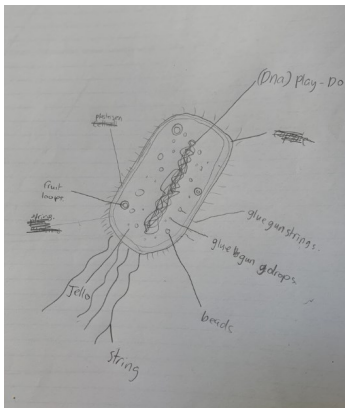 (Dna) play-Do
fruit
loops
glue gun strings.
glue gun drops
Jello
beads
String